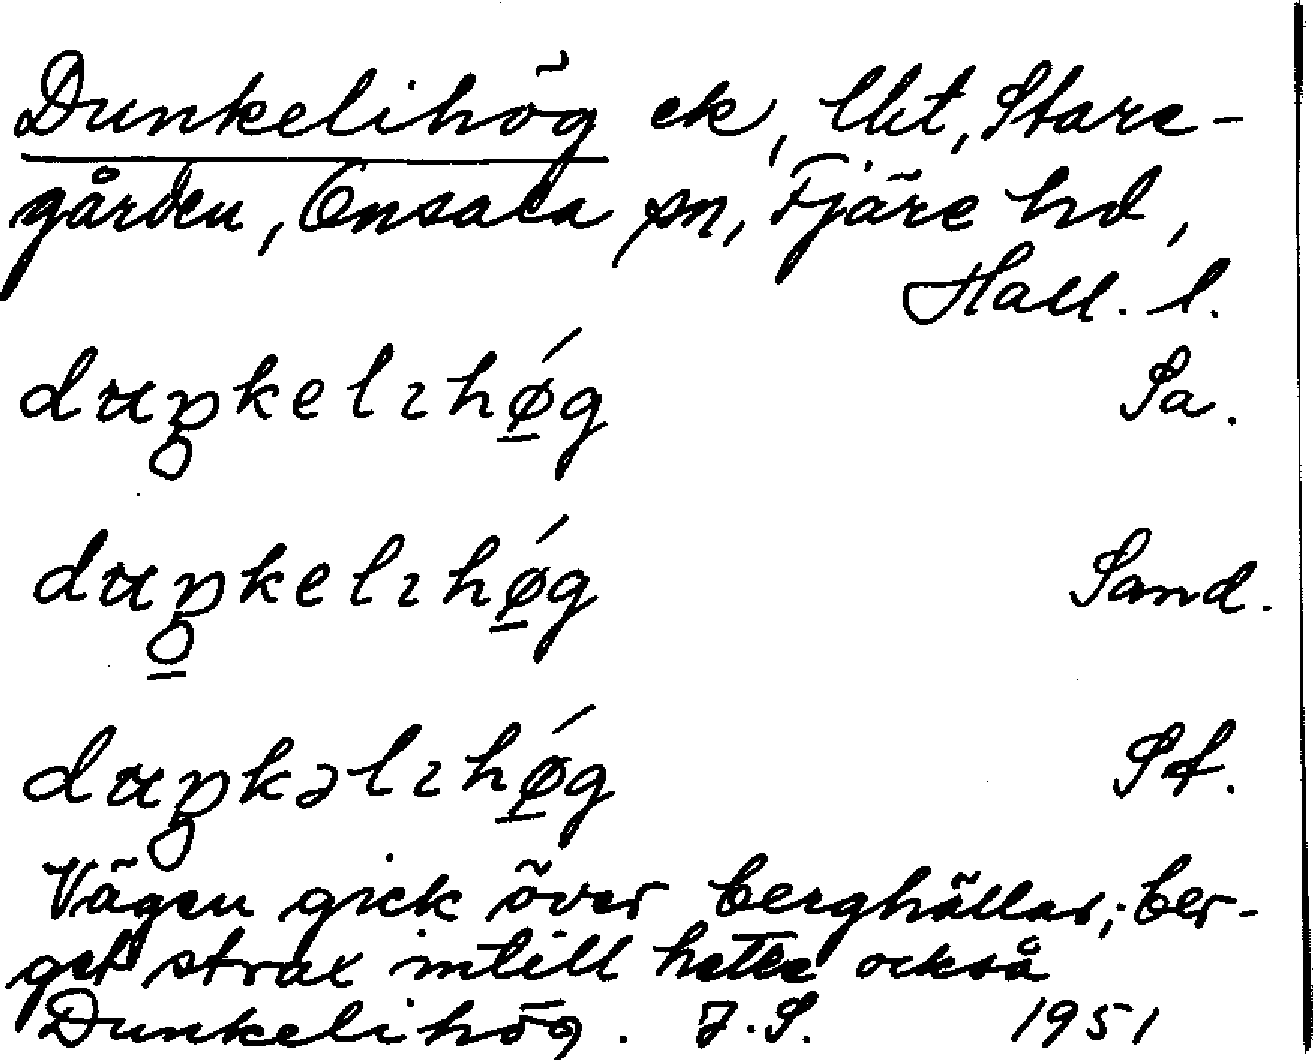 Dunkelihög ek, Ukt, Stare-
gården, Onsala sn, Fjäre hd,
Hall. l.
duŋkelıhǿ̱g Sa.
duŋkelıhǿ̱g Sand.
duŋkəlıhǿ̱g St.
Vägen gick över berghällar; ber-
get strax intill hette också
Dunkelihög. J.S. 1951